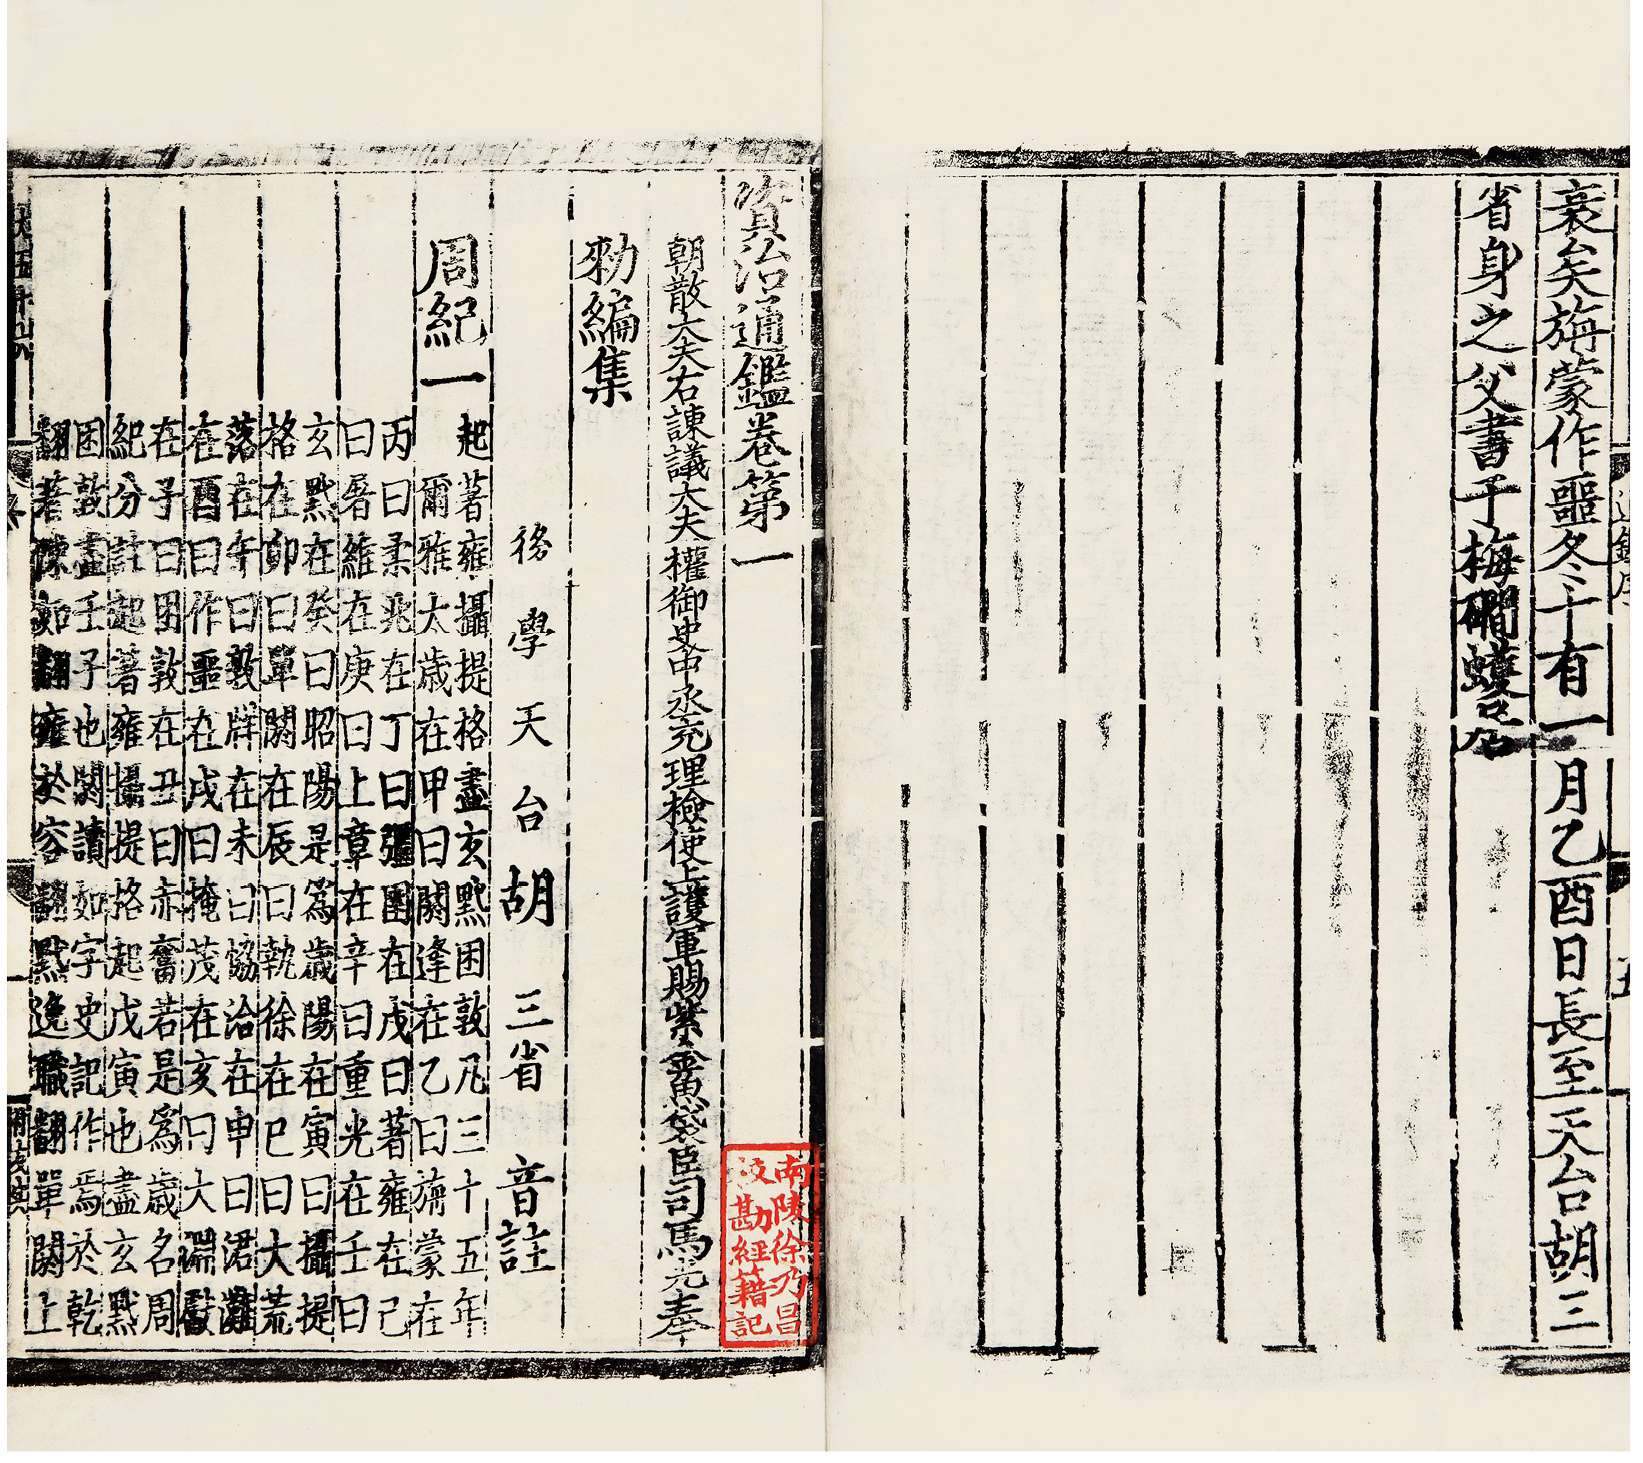 衰矣旃蒙作噩冬十有一月乙酉日長至天台胡三
省身之父書于梅磵蠖居
資治通鑑卷第一
朝散大夫右諫議大夫權御史中丞充理檢使上護軍賜紫金魚袋臣司馬光奉
勑編集
後學天台胡三省音註
周紀一
起著雍攝提格盡玄黓困敦凡三十五年
爾雅太歲在甲曰閼逢在乙曰旃蒙在
丙曰柔兆在丁曰彊圉在戊曰著雍在己
曰屠維在庚曰上章在辛曰重光在壬曰
玄黓在癸曰昭陽是爲歲陽在寅曰攝提
格在卯曰單閼在辰曰執徐在巳曰大荒
落在午曰敦牂在未曰協洽在申曰涒灘
在酉曰作噩在戌曰掩茂在亥曰大淵獻
在子曰困敦在丑曰赤奮若是爲歲名周
紀分註起著雍攝提格起戊寅也盡玄黓
困敦盡壬子也閼讀如字史記作焉於乾
翻著陳如翻雍於容翻黓逸職翻單閼上
南陵徐乃昌
校勘經籍記
通鑑序
五